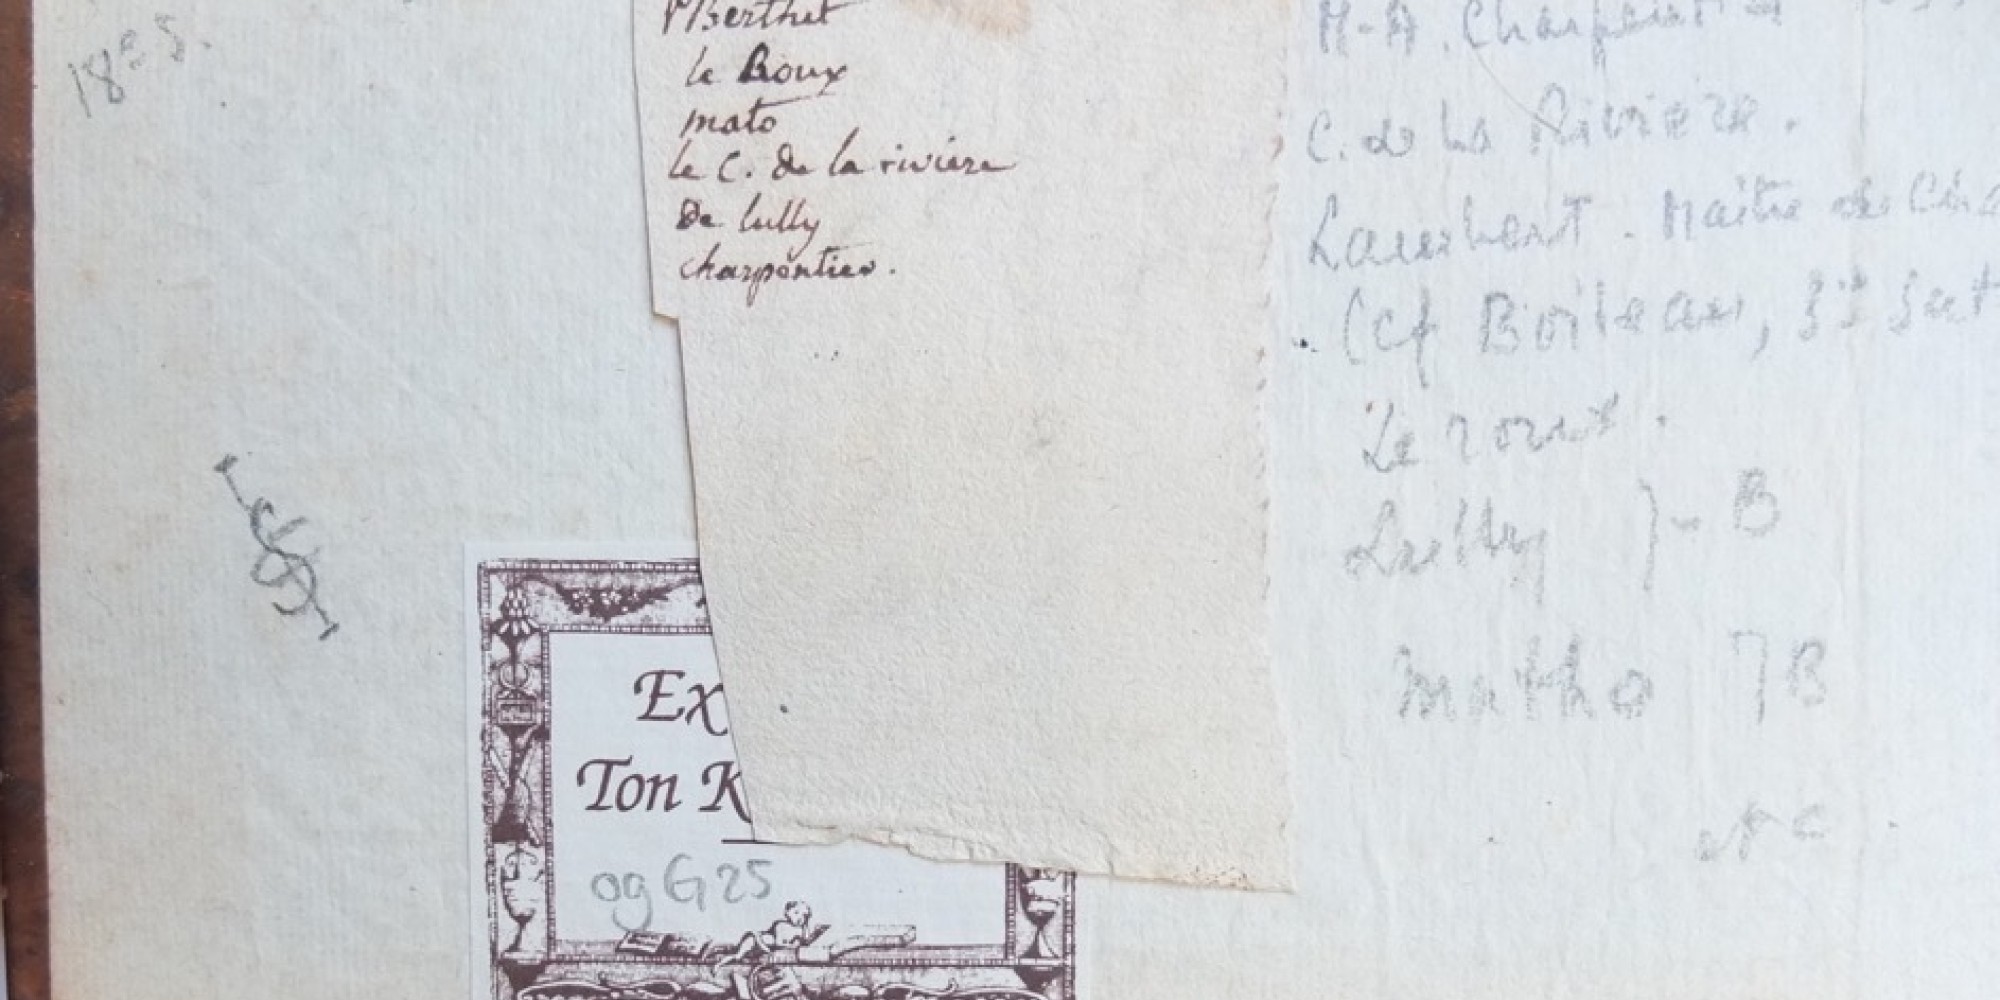 18e s.
Berthet
le Roux
mato
le C. de la riviere
De lully
charpentier.
M-A. Charpentier
C. de La Riviere.
Lambert. Maître de Cha
(cf Boileau, 3e Sat
Le roux.
Lully }- B
Matho ] B
Ex
Ton K
og G 25